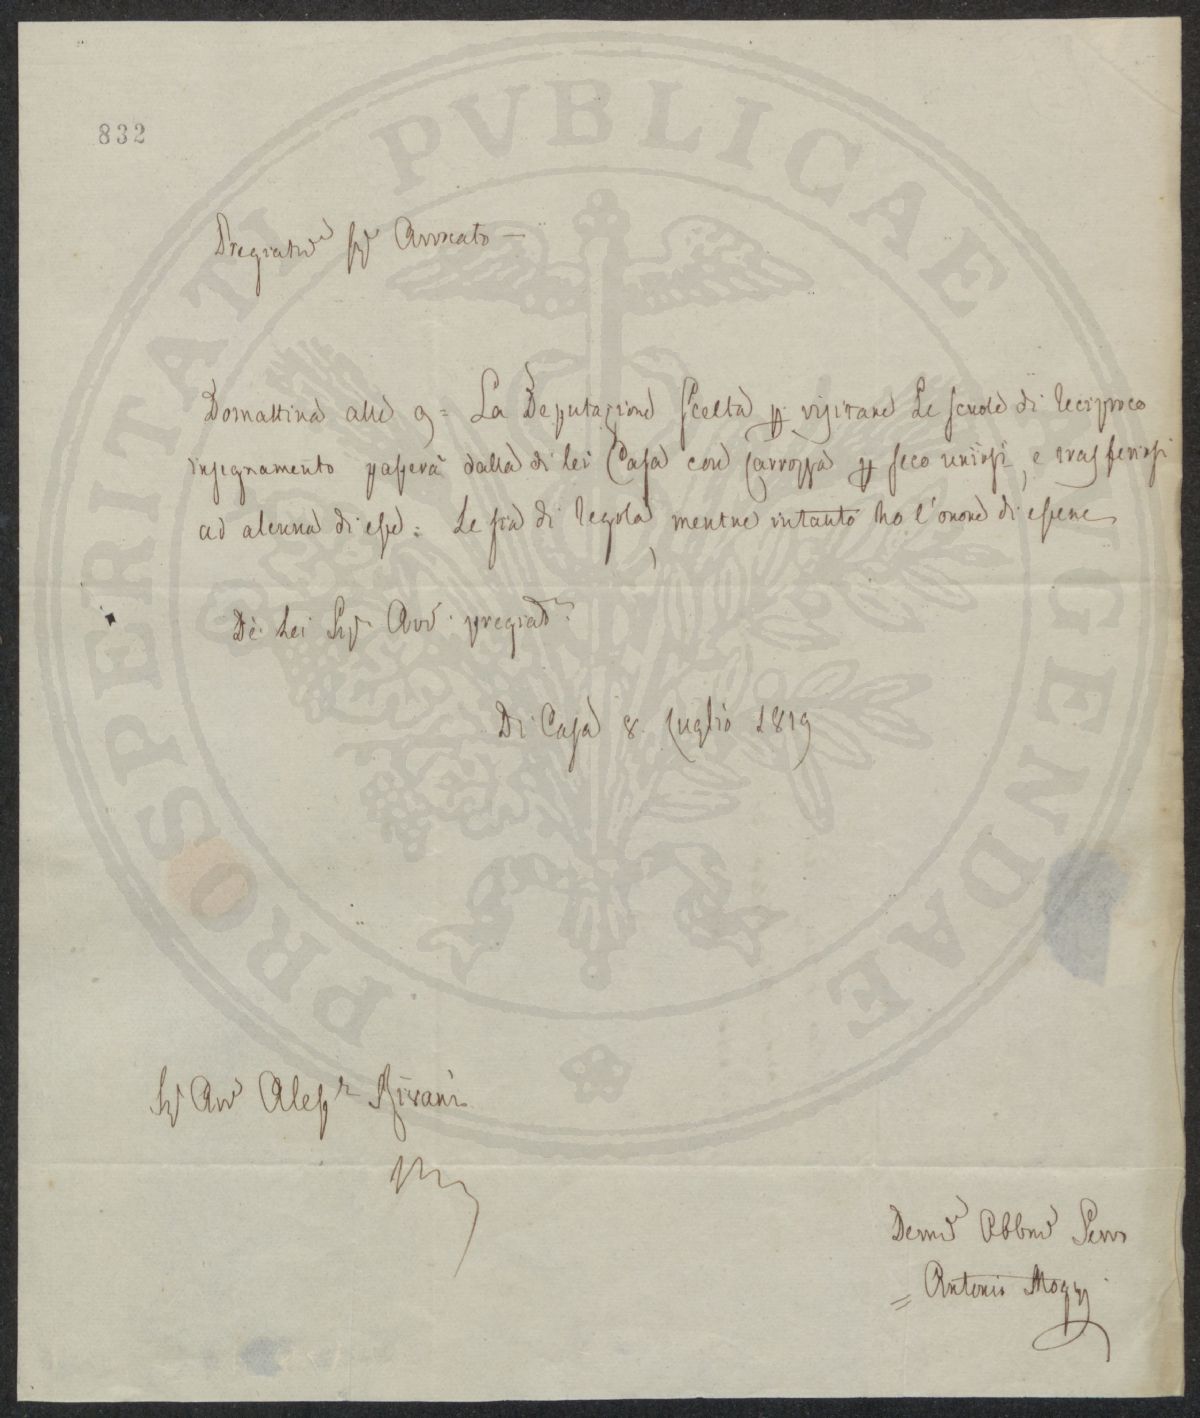 832
PROSPERITATI PVBLICAE AVGENDAE
Pregiatme Sigr Avvocato —
Domattina alle 9 = La Deputazione scelta p. visitare le scuole di reciproco
insegnamento passerà dalla di lei Casa con Carrozza p seco unirsi, e trasferirsi
ad alcuna di esse : Le sia di regola, mentre intanto ho l'onore di essere
De Lei Sigr Avve. pregiatme
Di Casa 8. Luglio 1819
Sigr Avve Alessre Rivani
Devme Obbme Serv
= Antonio